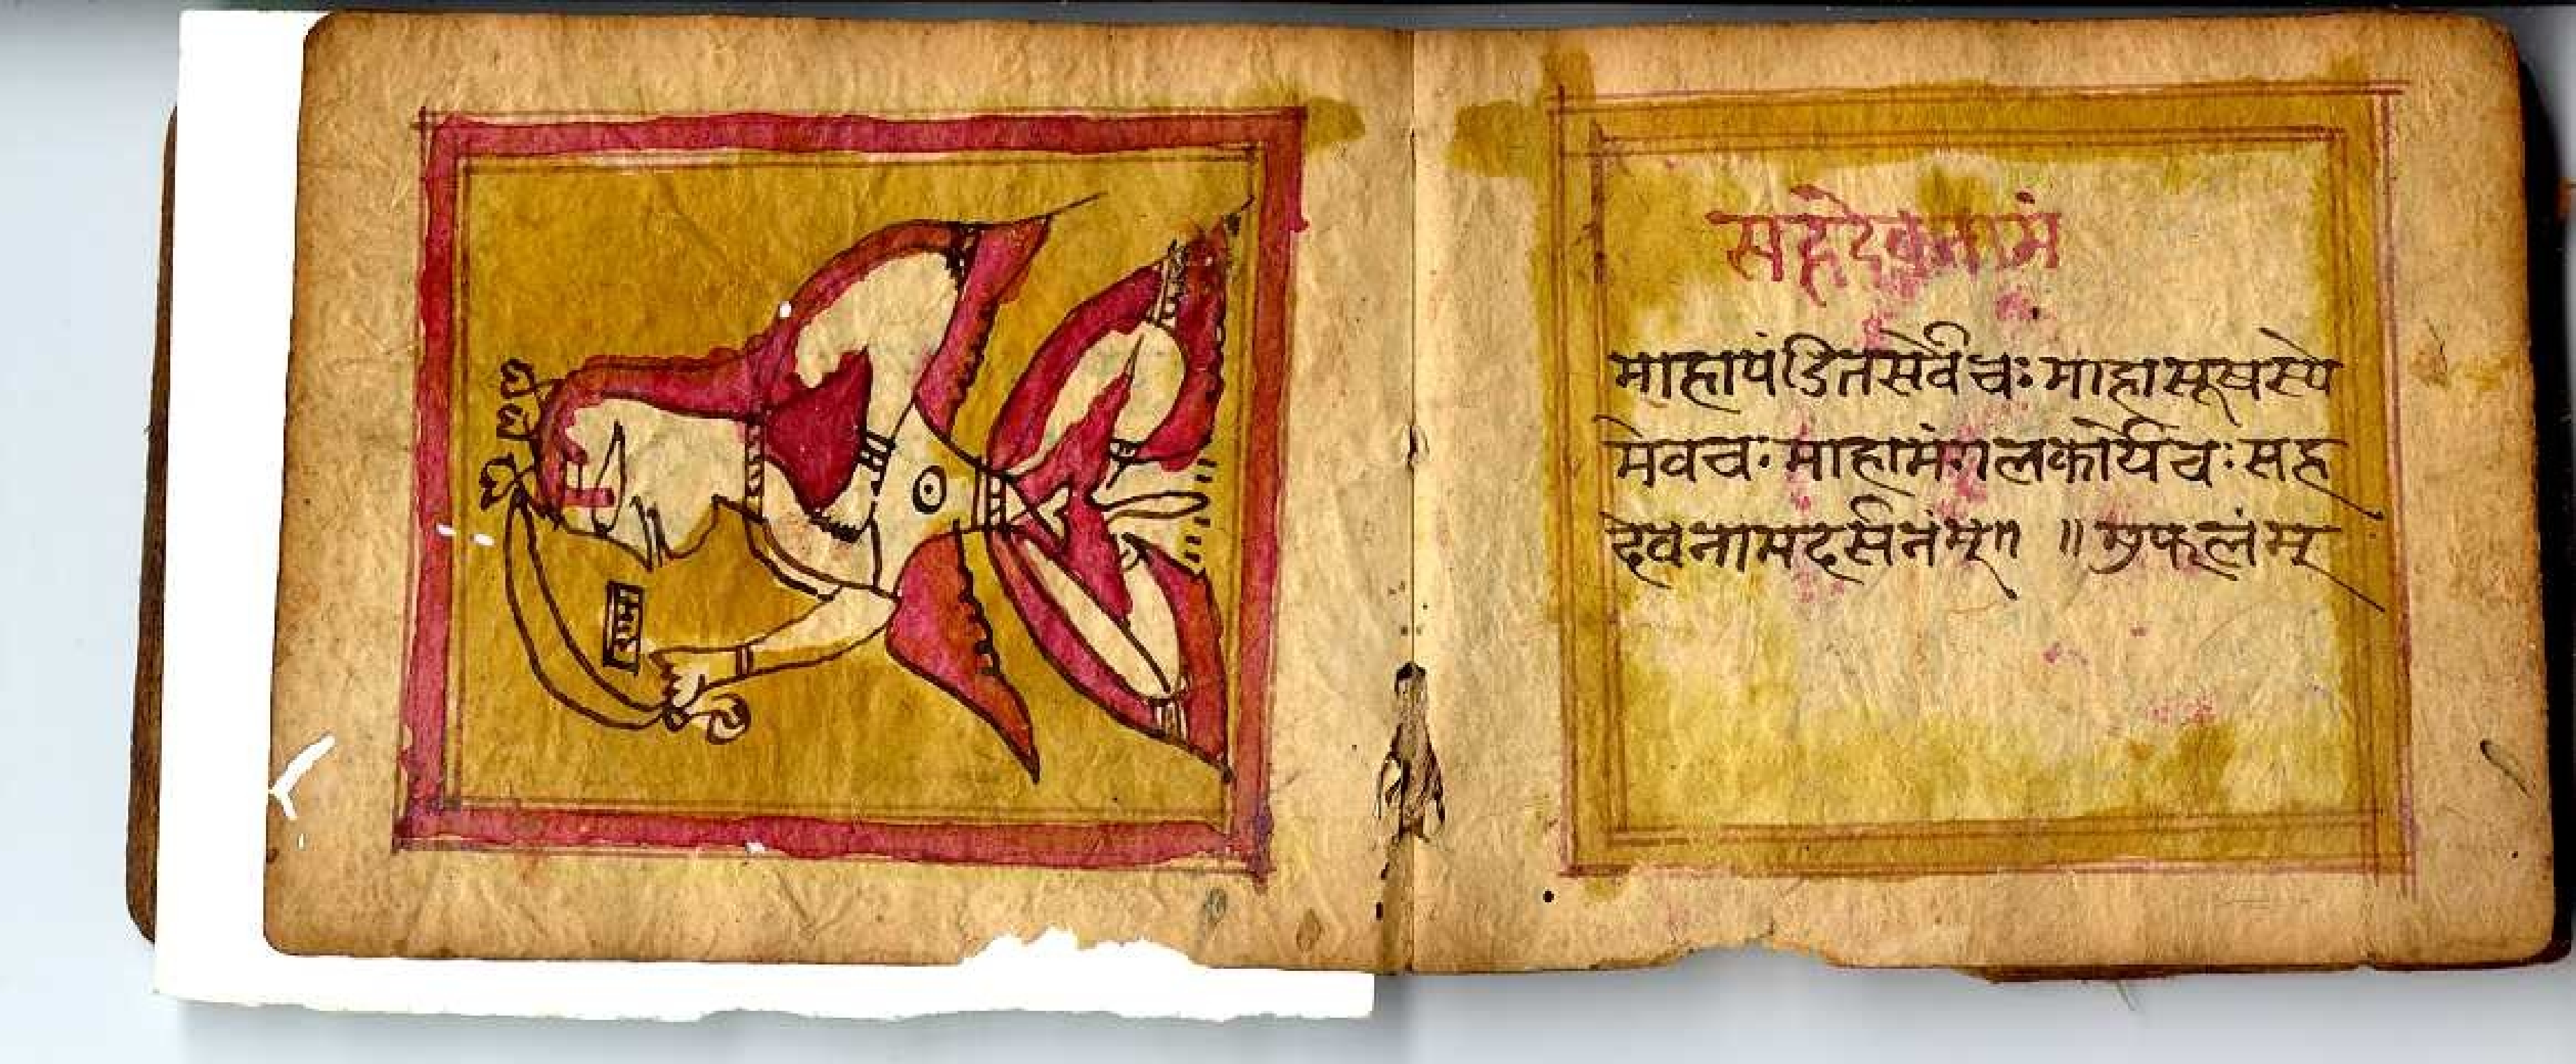 सहदेवनामं
माहापंडितसर्वचः माहासूखस्ये
मेवचः माहामंगलकार्यचः सह
देवनामदर्सनंभूत ॥ शुफलंभू